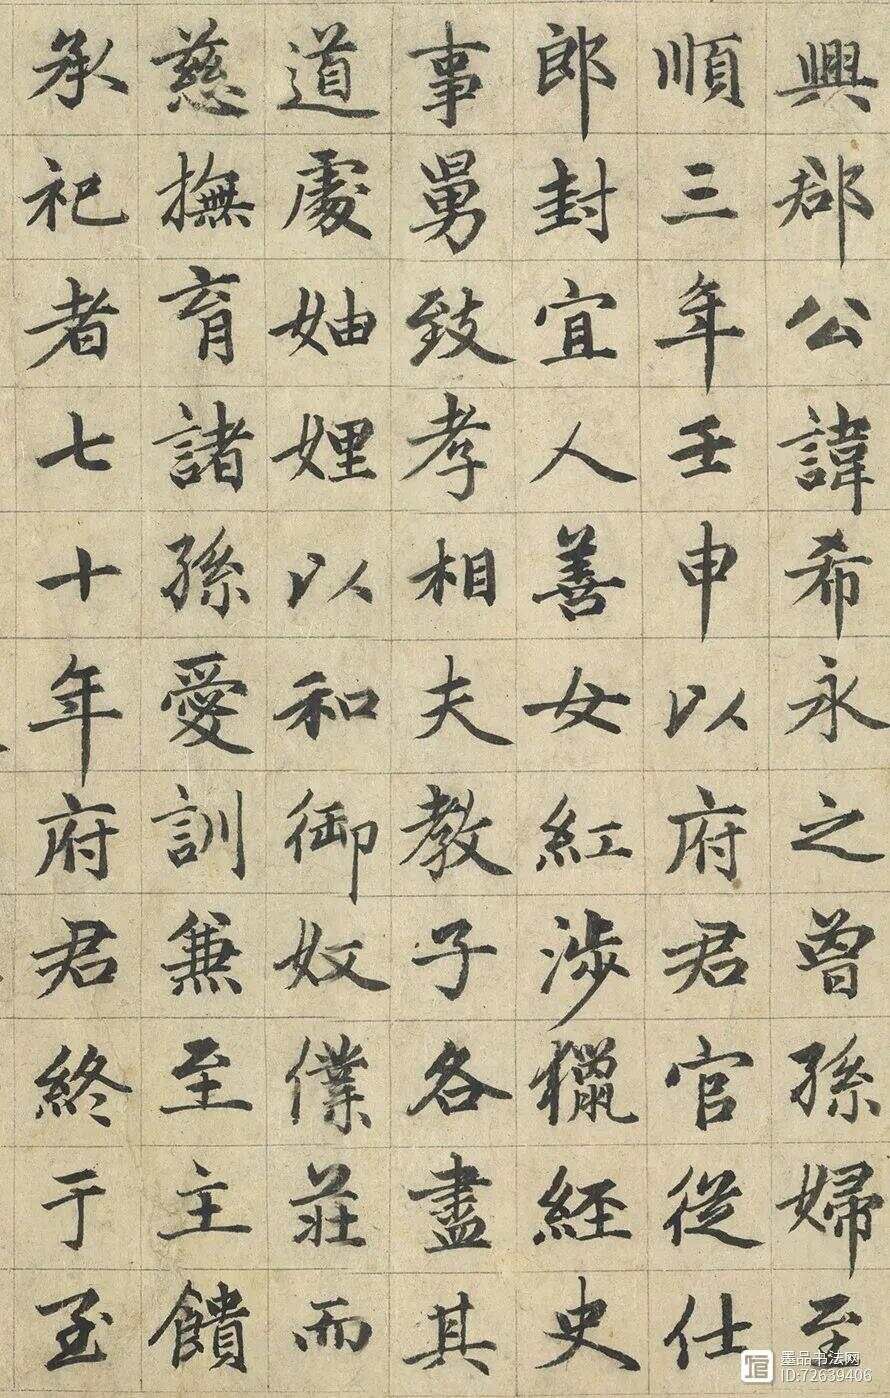 興郡公諱希永之曾孫婦至
順三年壬申以府君官從仕
郎封宜人善女紅涉獵經史
事舅致孝相夫教子各盡其
道處妯娌以和御奴僕莊而
慈撫育諸孫愛訓兼至主饋
承祀者七十年府君終于至
墨品书法网
ID:72639406